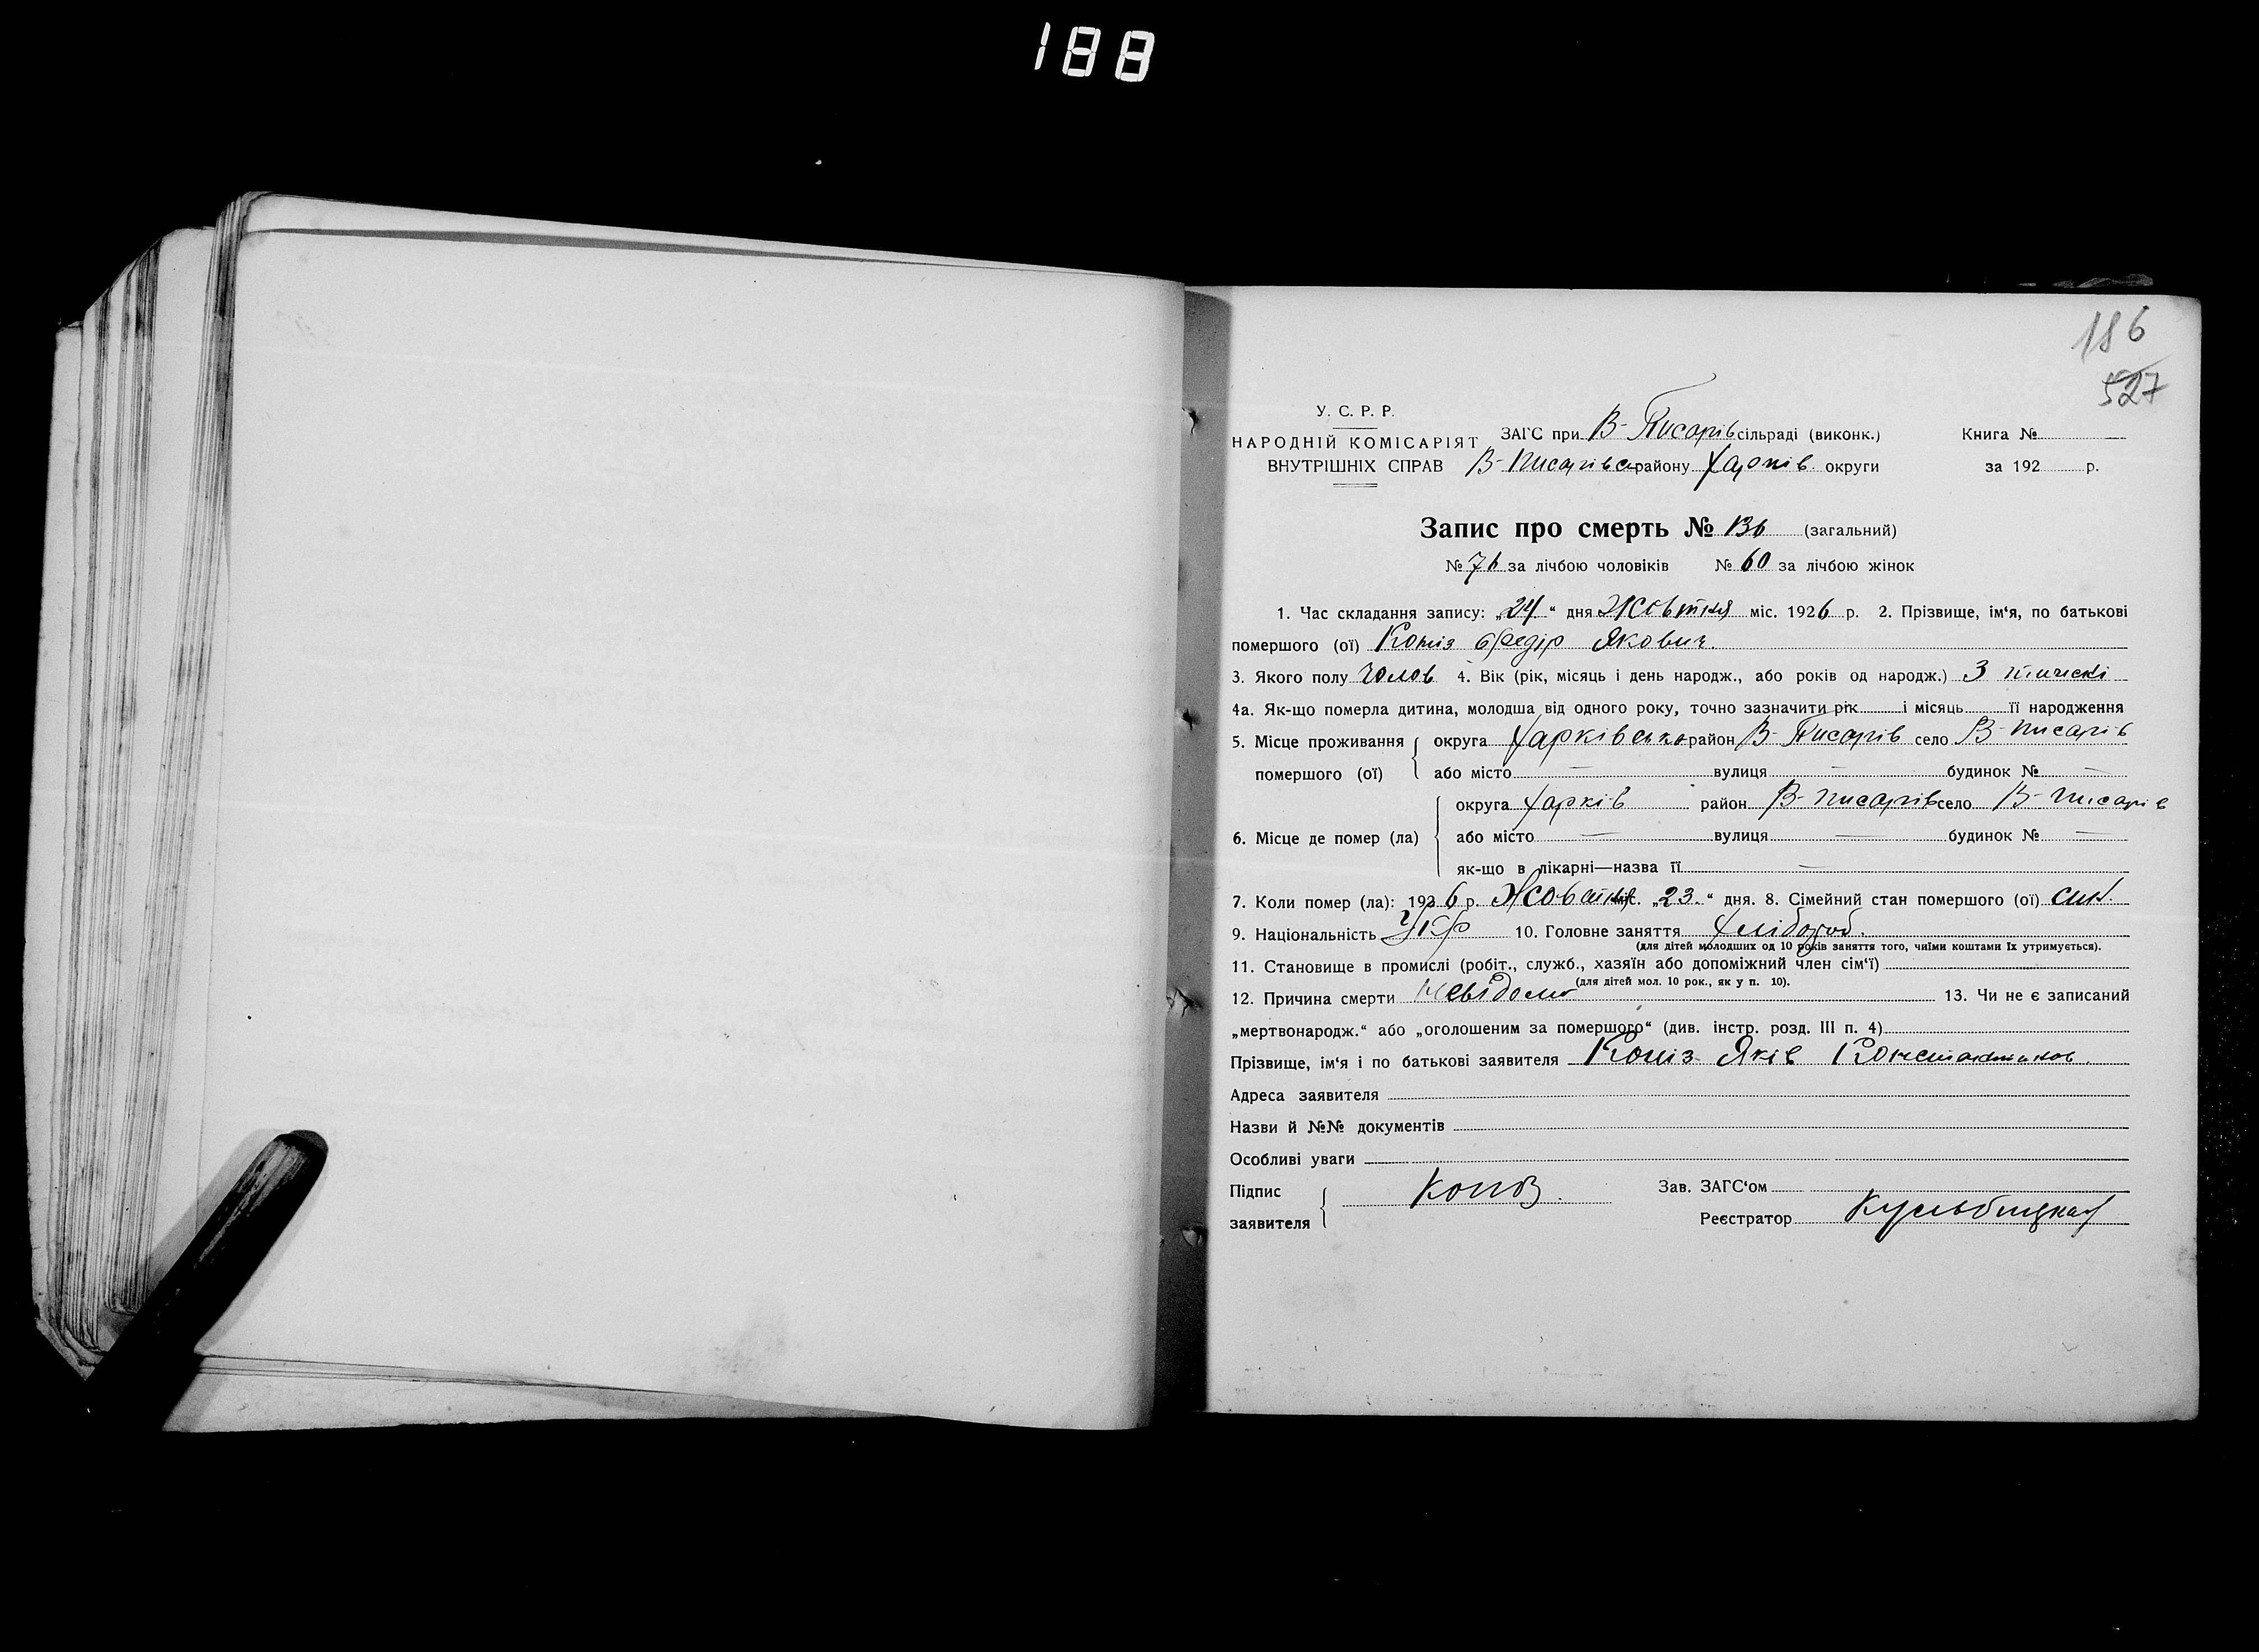 188
186
527
У. С. Р. Р.
НАРОДНІЙ КОМІСАРІЯТ
ВНУТРІШНІХ СПРАВ
ЗАГС при В-Писарів сільраді (виконк.)
В-Писарівс району Харків округи
Книга №
за 192 р.
Запис про смерть № 136 (загальний)
№ 76 за лічбою чоловіків № 60 за лічбою жінок
1. Час складання запису: „24“ дня Жовтня міс. 1926 р. 2. Прізвище, ім‘я, по батькові
помершого (ої) Федір Якович.
3. Якого полу Чолов 4. Вік (рік, місяць і день народж., або років од народж.) 3 тижні
4а. Як-що померла дитина, молодша від одного року, точно зазначити рік і місяць її народження
5. Місце проживання помершого (ої) округа Харківсько район В-Писарів село В-Писарів
або місто — вулиця — будинок № —
6. Місце де помер (ла) округа Харків район В-Писарів село В-Писарів
або місто — вулиця — будинок № —
як-що в лікарні—назва її —
7. Коли помер (ла): 1926 р. Жовтня міс. „23.“ дня. 8. Сімейний стан помершого (ої) син.
9. Національність Укр 10. Головне заняття Хлібороб.
(для дітей молодших од 10 років заняття того, чиїми коштами їх утримується).
11. Становище в промислі (робіт., служб., хазяїн або допоміжний член сім‘ї)
(для дітей мол. 10 рок., як у п. 10).
12. Причина смерти Невідомо 13. Чи не є записаний
„мертвонародж.“ або „оголошеним за помершого“ (див. інстр. розд. III п. 4)
Прізвище, ім‘я і по батькові заявителя Яків Константинов.
Адреса заявителя
Назви й №№ документів
Особливі уваги
Підпис
заявителя
Зав. ЗАГС‘ом
Реєстратор